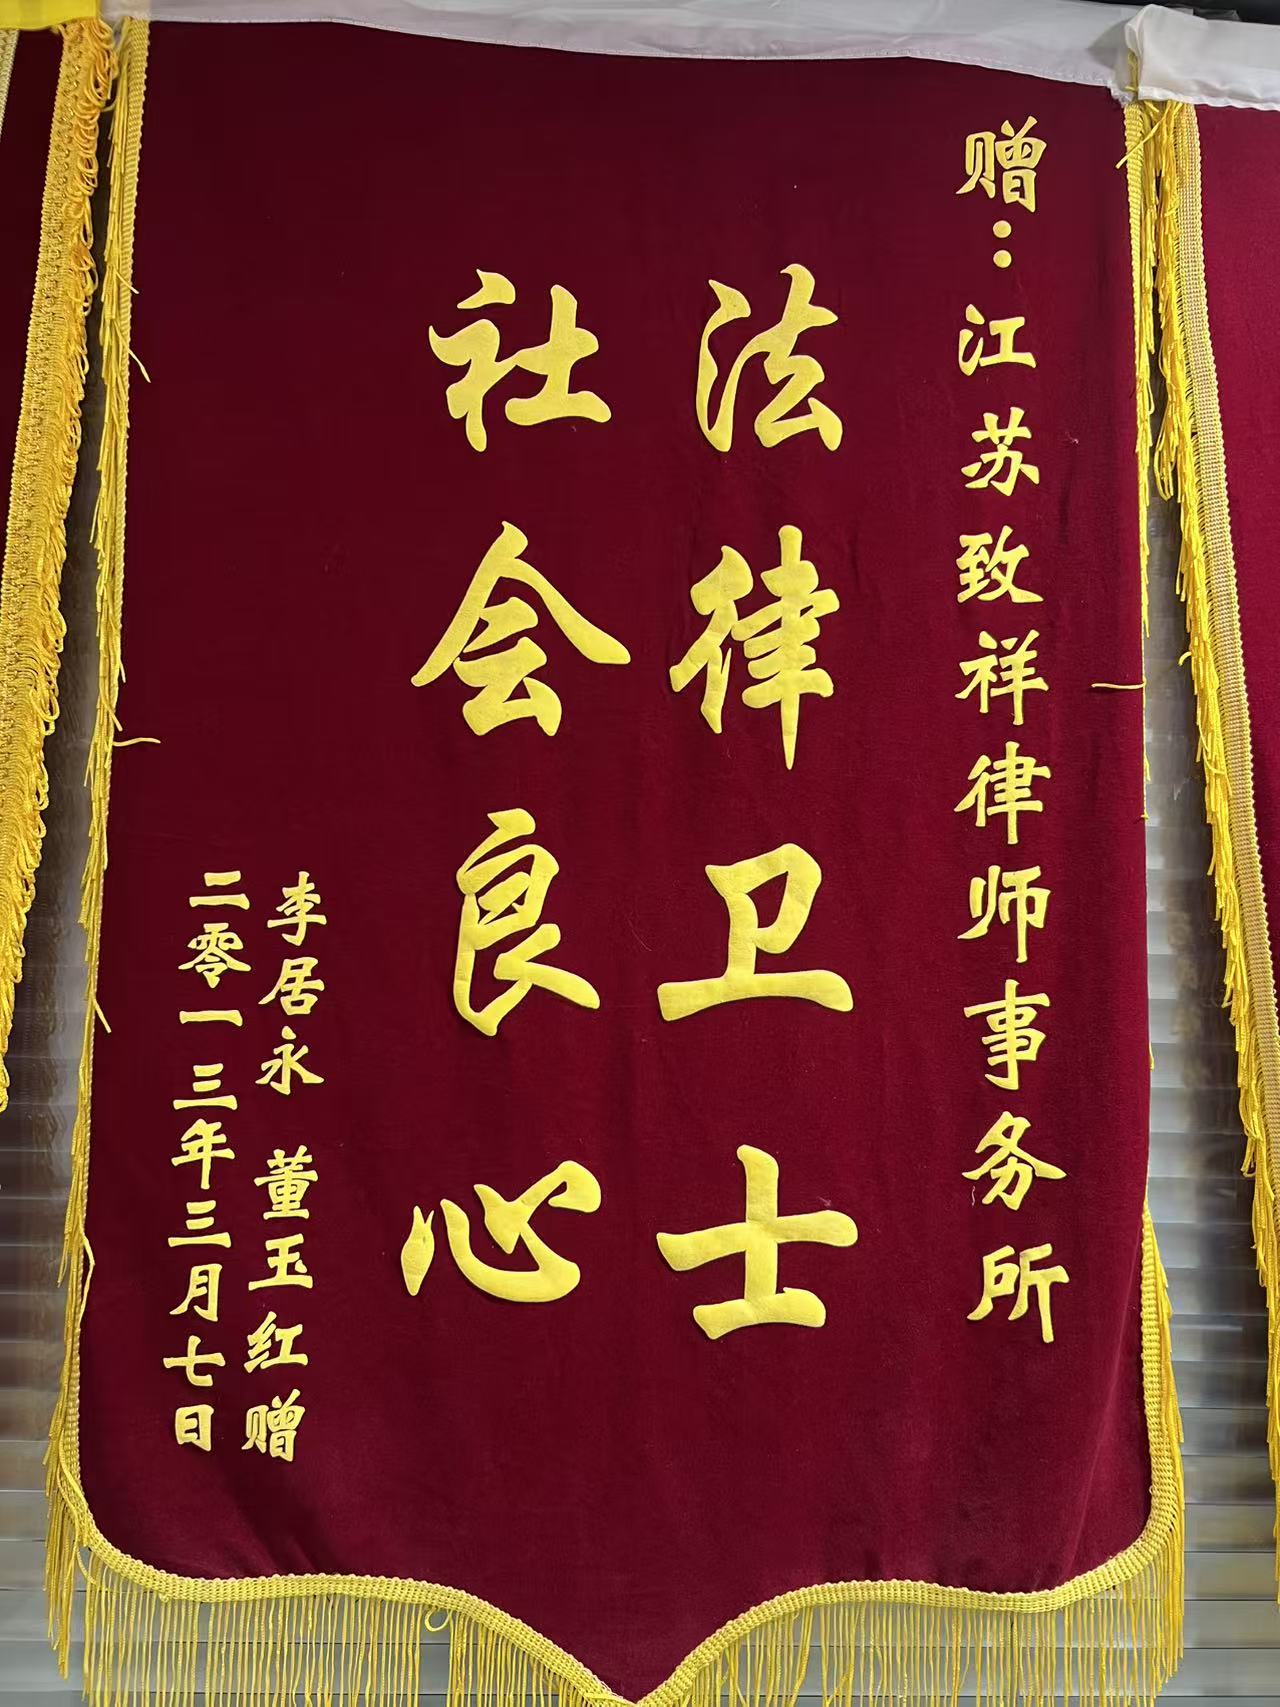 赠：江苏致祥律师事务所
法律卫士
社会良心
李居永 董玉红赠
二零一三年三月七日